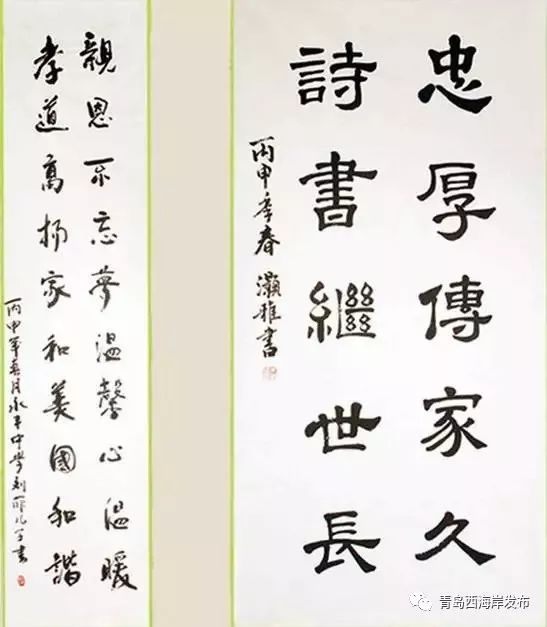 忠厚傳家久
詩書繼世長
丙申季春 灝雅書
親恩不忘夢温馨心温暖
孝道高揚家和美國和諧
丙申年春月 中學 書
青岛西海岸发布